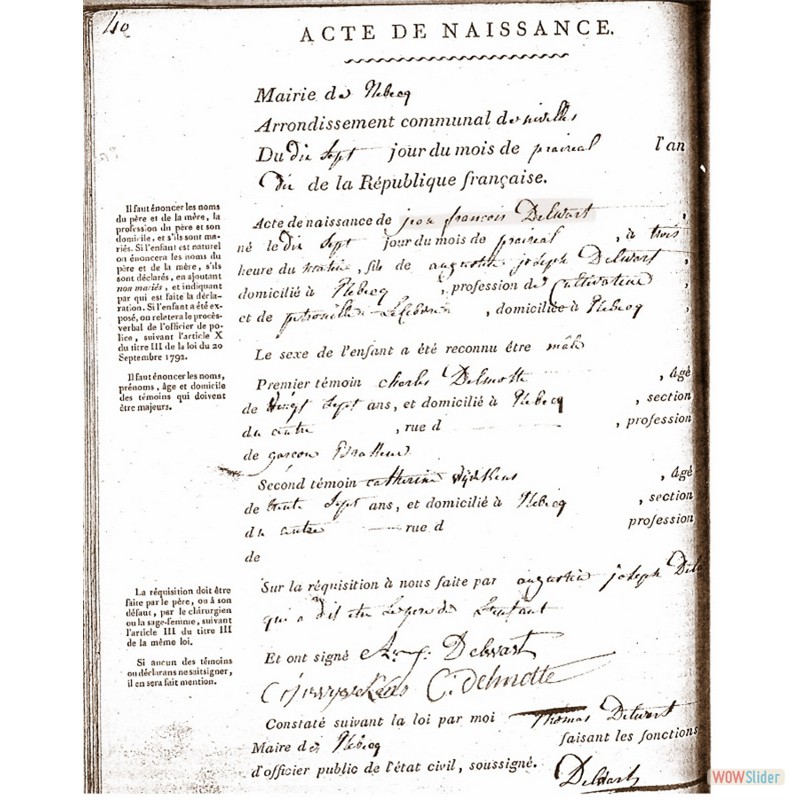 40
ACTE DE NAISSANCE.
Mairie de Rebecq
Arrondissement communal de nivelles
Du dix sept jour du mois de prairial l'an
dix de la République française.
Acte de naissance de jean francois Delwart ,
né le dix sept jour du mois de prairial , à trois
heure du matin , fils de augustin joseph Delwart ,
domicilié à Rebecq , profession de Cultivateur
et de petronille Lefebvre , domiciliée à Rebecq ,
Le sexe de l'enfant a été reconnu être mâle
Premier témoin charles Delmotte , âgé
de vingt sept ans, et domicilié à Rebecq , section
du centre , rue d , profession
de garçon Brasseur
Second témoin catherine , âgé
de trente sept ans, et domicilié à Rebecq , section
du centre rue d profession
de
Sur la réquisition à nous faite par augustin joseph Del
qui a dit être le pere de l'enfant
Et ont signé Aug. Delwart
C. delmotte
Constaté suivant la loi par moi Thomas Delwart
Maire de Rebecq faisant les fonctions
d'officier public de l'état civil, soussigné. Delwart
Il faut énoncer les noms
du père et de la mère, la
profession du père et son
domicile, et s'ils sont ma-
riés. Si l'enfant est naturel
on énoncera les noms du
père et de la mère, s'ils
sont déclarés, en ajoutant
non mariés, et indiquant
par qui est faite la décla-
ration. Si l'enfant a été ex-
posé, on relatera le procès-
verbal de l'officier de po-
lice, suivant l'article X
du titre III de la loi du 20
Septembre 1792.
Il faut énoncer les noms,
prénoms, âge et domicile
des témoins qui doivent
être majeurs.
La réquisition doit être
faite par le père, ou à son
défaut, par le chirurgien
ou la sage-femme, suivant
l'article III du titre III
de la même loi.
Si aucun des témoins
ou déclarans ne sait signer,
il en sera fait mention.
WOWSlider